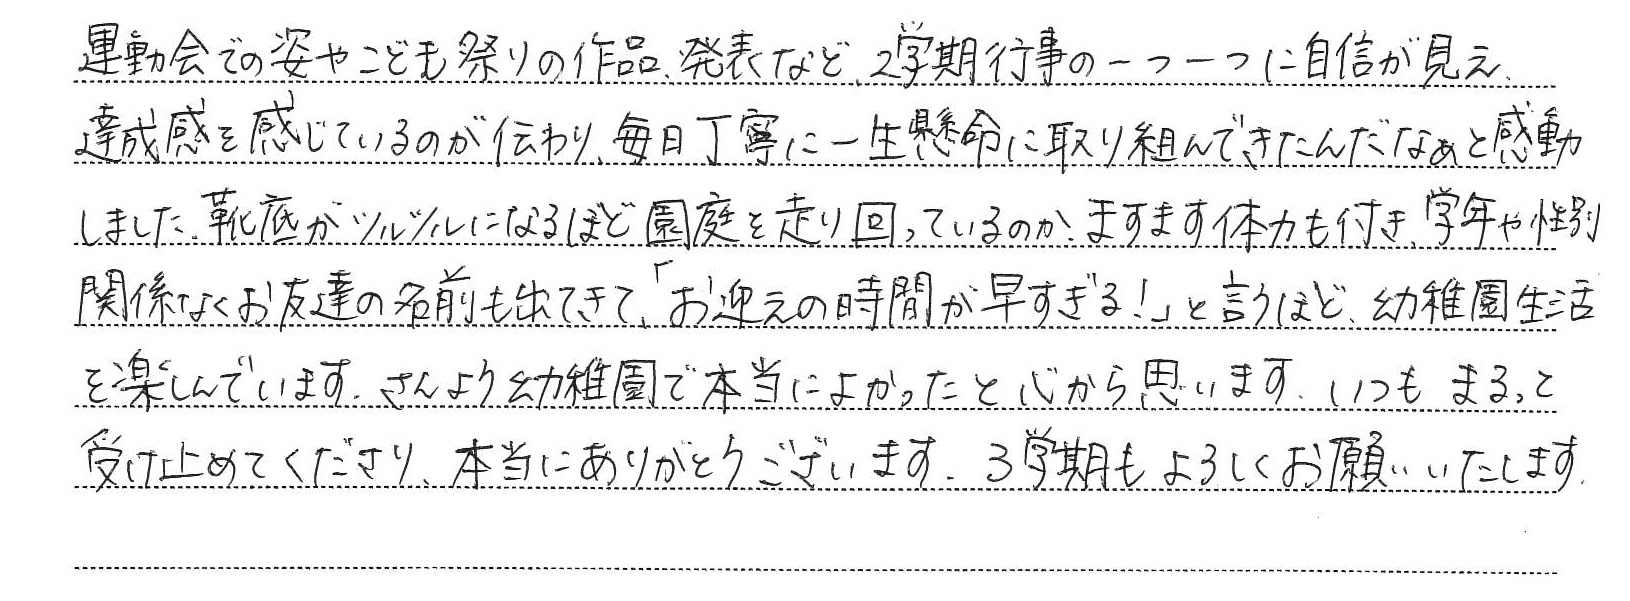 運動会での姿やこども祭りの作品、発表など、2学期行事の一つ一つに自信が見え、
達成感を感じているのが伝わり、毎日丁寧に一生懸命に取り組んできたんだなぁと感動
しました。靴底がツルツルになるほど園庭を走り回っているのか、ますます体力も付き、学年や性別
関係なくお友達の名前も出てきて、「お迎えの時間が早すぎる!」と言うほど、幼稚園生活
を楽しんでいます。さんよう幼稚園で本当によかったと心から思います。いつも まるっと
受け止めてくださり、本当にありがとうございます。3学期もよろしくお願いいたします。